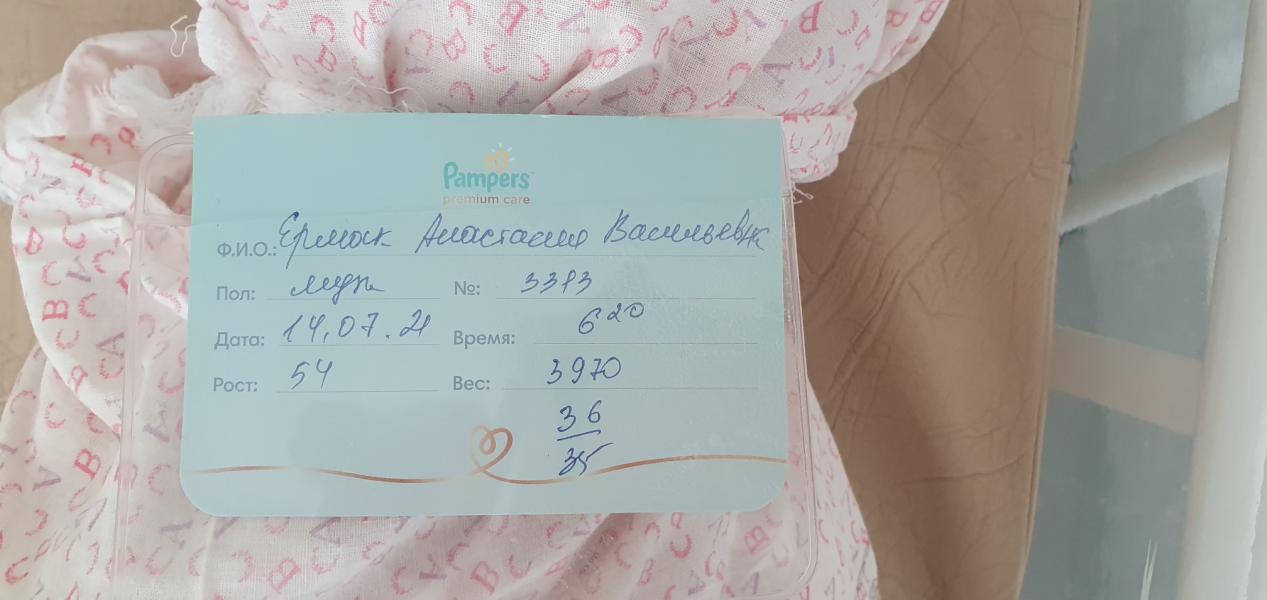 Pampers
premium care
Ф.И.О.: Ермак Анастасия Васильевн
Пол: муж №: 3383
Дата: 14.07.21 Время: 6 20
Рост: 54 Вес: 3970
36
35